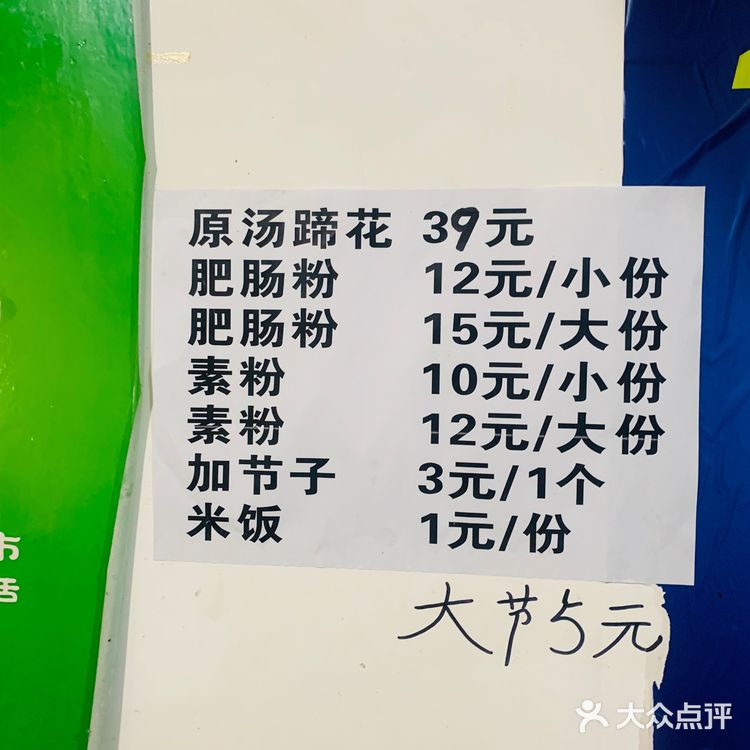 原汤蹄花 39元
肥肠粉 12元/小份
肥肠粉 15元/大份
素粉 10元/小份
素粉 12元/大份
加节子 3元/1个
米饭 1元/份
大节5元
市
大众点评